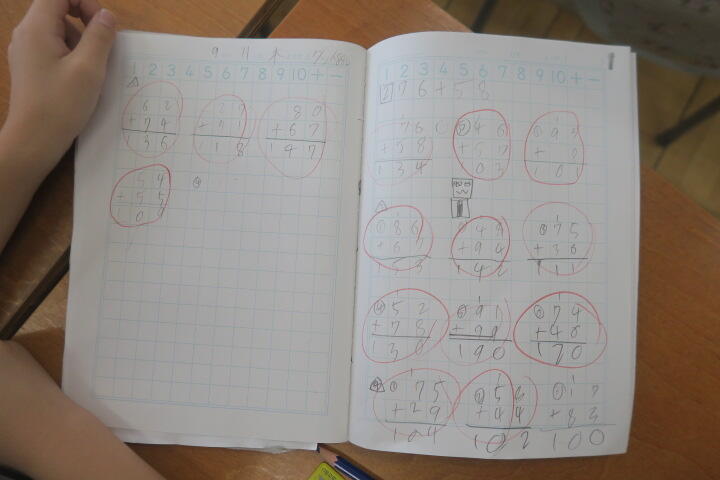 9 11 木
1 2 3 4 5 6 7 8 9 10 + −
62
+ 74
136
+
118
80
+ 67
147
54
+ 55
10
1 2 3 4 5 6 7 8 9 10 + −
2 76 + 58
76
+ 58
134
46
+ 57
03
+ 8
101
86
+ 67
53
48
+ 94
142
75
+ 36
111
52
+ 78
130
91
+ 99
190
74
+ 46
120
75
+ 29
104
58
+ 44
102
17
+ 83
100